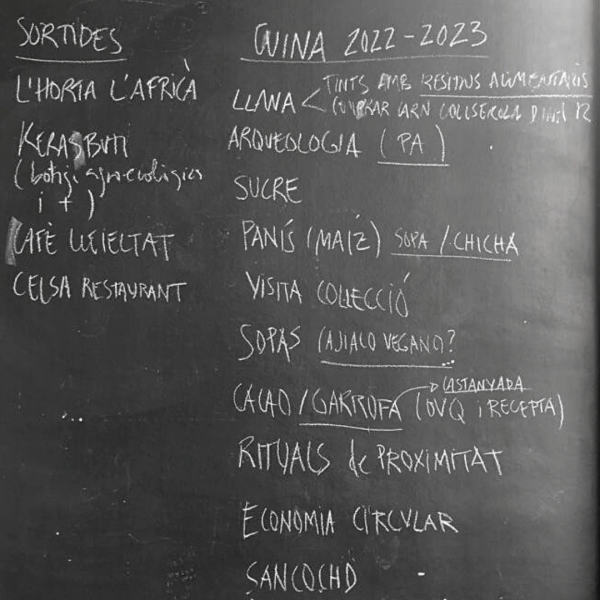 SORTIDES
L'HORTA L'AFRICÀ
(botiga agroecològica
i +)
CAFÈ
CELSA RESTAURANT
CUINA 2022-2023
LLANA < TINTS AMB RESIDUS ALIMENTARIS
COMPRAR COLLSEROLA
ARQUEOLOGIA (PA)
SUCRE
PANÍS (MAÍZ) SOPA / CHICHA
VISITA COLLECCIÓ
SOPAS (AJIACO VEGANO?
CASTANYADA
CACAO / GARROFA (OVQ i RECEPTA)
RITUALS de PROXIMITAT
ECONOMIA CIRCULAR
SANCOCHO